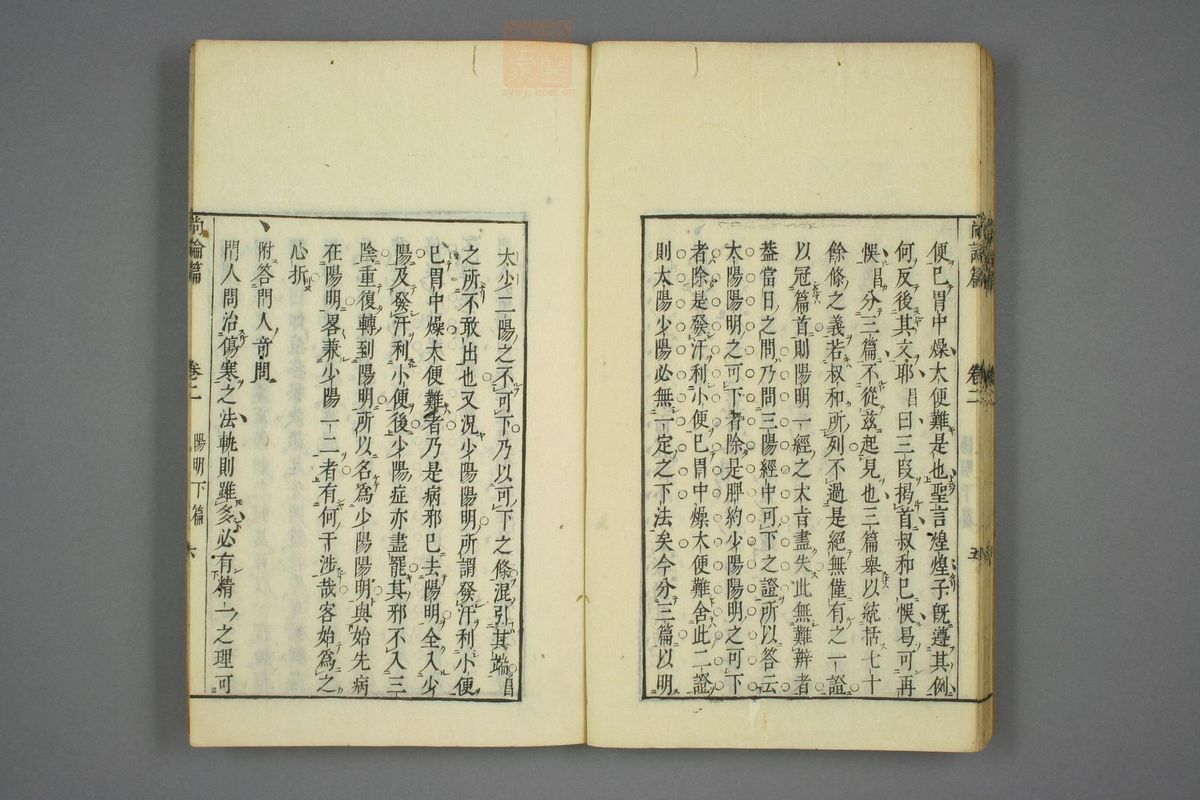 尚論篇 卷二 五
便已胃中燥大便難是也聖言煌煌子旣遵其例
何反後其文耶昌曰三段揭首叔和已悞昜可再
悞昌分三篇不從兹起見也三篇舉以統括七十
餘條之義若叔和所列不過是絕無僅有之一證
以冠篇首則陽明一經之大㫖盡失此無難辨者
葢當日之問乃問三陽經中可下之證所以答云
太陽陽明之可下者除是脾約少陽陽明之可下
者除是發汗利小便已胃中燥大便難舍此二證
則太陽少陽必無一定之下法矣今分三篇以明
太少二陽之不可下乃以可下之條混引其端昌
之所不敢出也又況少陽陽明所謂發汗利小便
已胃中燥大便難者乃是病邪已去陽明全入少
陽及發汗利小便後少陽症亦盡罷其邪不入三
陰重復轉到陽明所以名爲少陽陽明與始先病
在陽明畧兼少陽一二者有何干涉哉客始爲之
心折
附答門人竒問
門人問治傷寒之法軌則雖多必有精一之理可
尚論篇 卷二 陽明下篇 六
zysj.com.cn